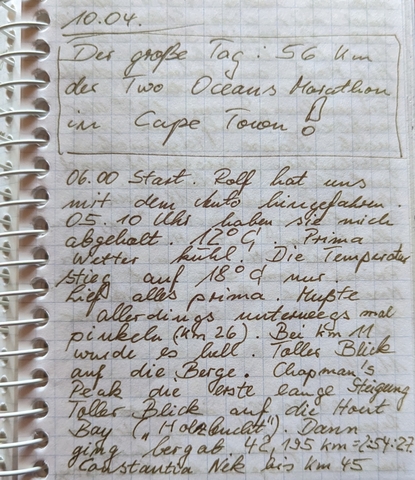 10.04.
Der große Tag: 56 km
des Two Oceans Marathon
in Cape Town!
06.00 Start. Rolf hat uns
mit dem Auto hingefahren.
05.10 Uhr haben sie mich
abgeholt. 12°C. Prima
Wetter kühl. Die Temperatur
stieg auf 18°C nur.
Lief alles prima. Mußte
allerdings unterwegs mal
pinkeln (km 26). Bei km 11
wurde es hell. Toller Blick
auf die Berge. Chapman's
Peak die erste lange Steigung
Toller Blick auf die Hout
Bay ("Holzbucht"). Dann
ging bergab 42,195 km =
Constantia Nek bis km 45